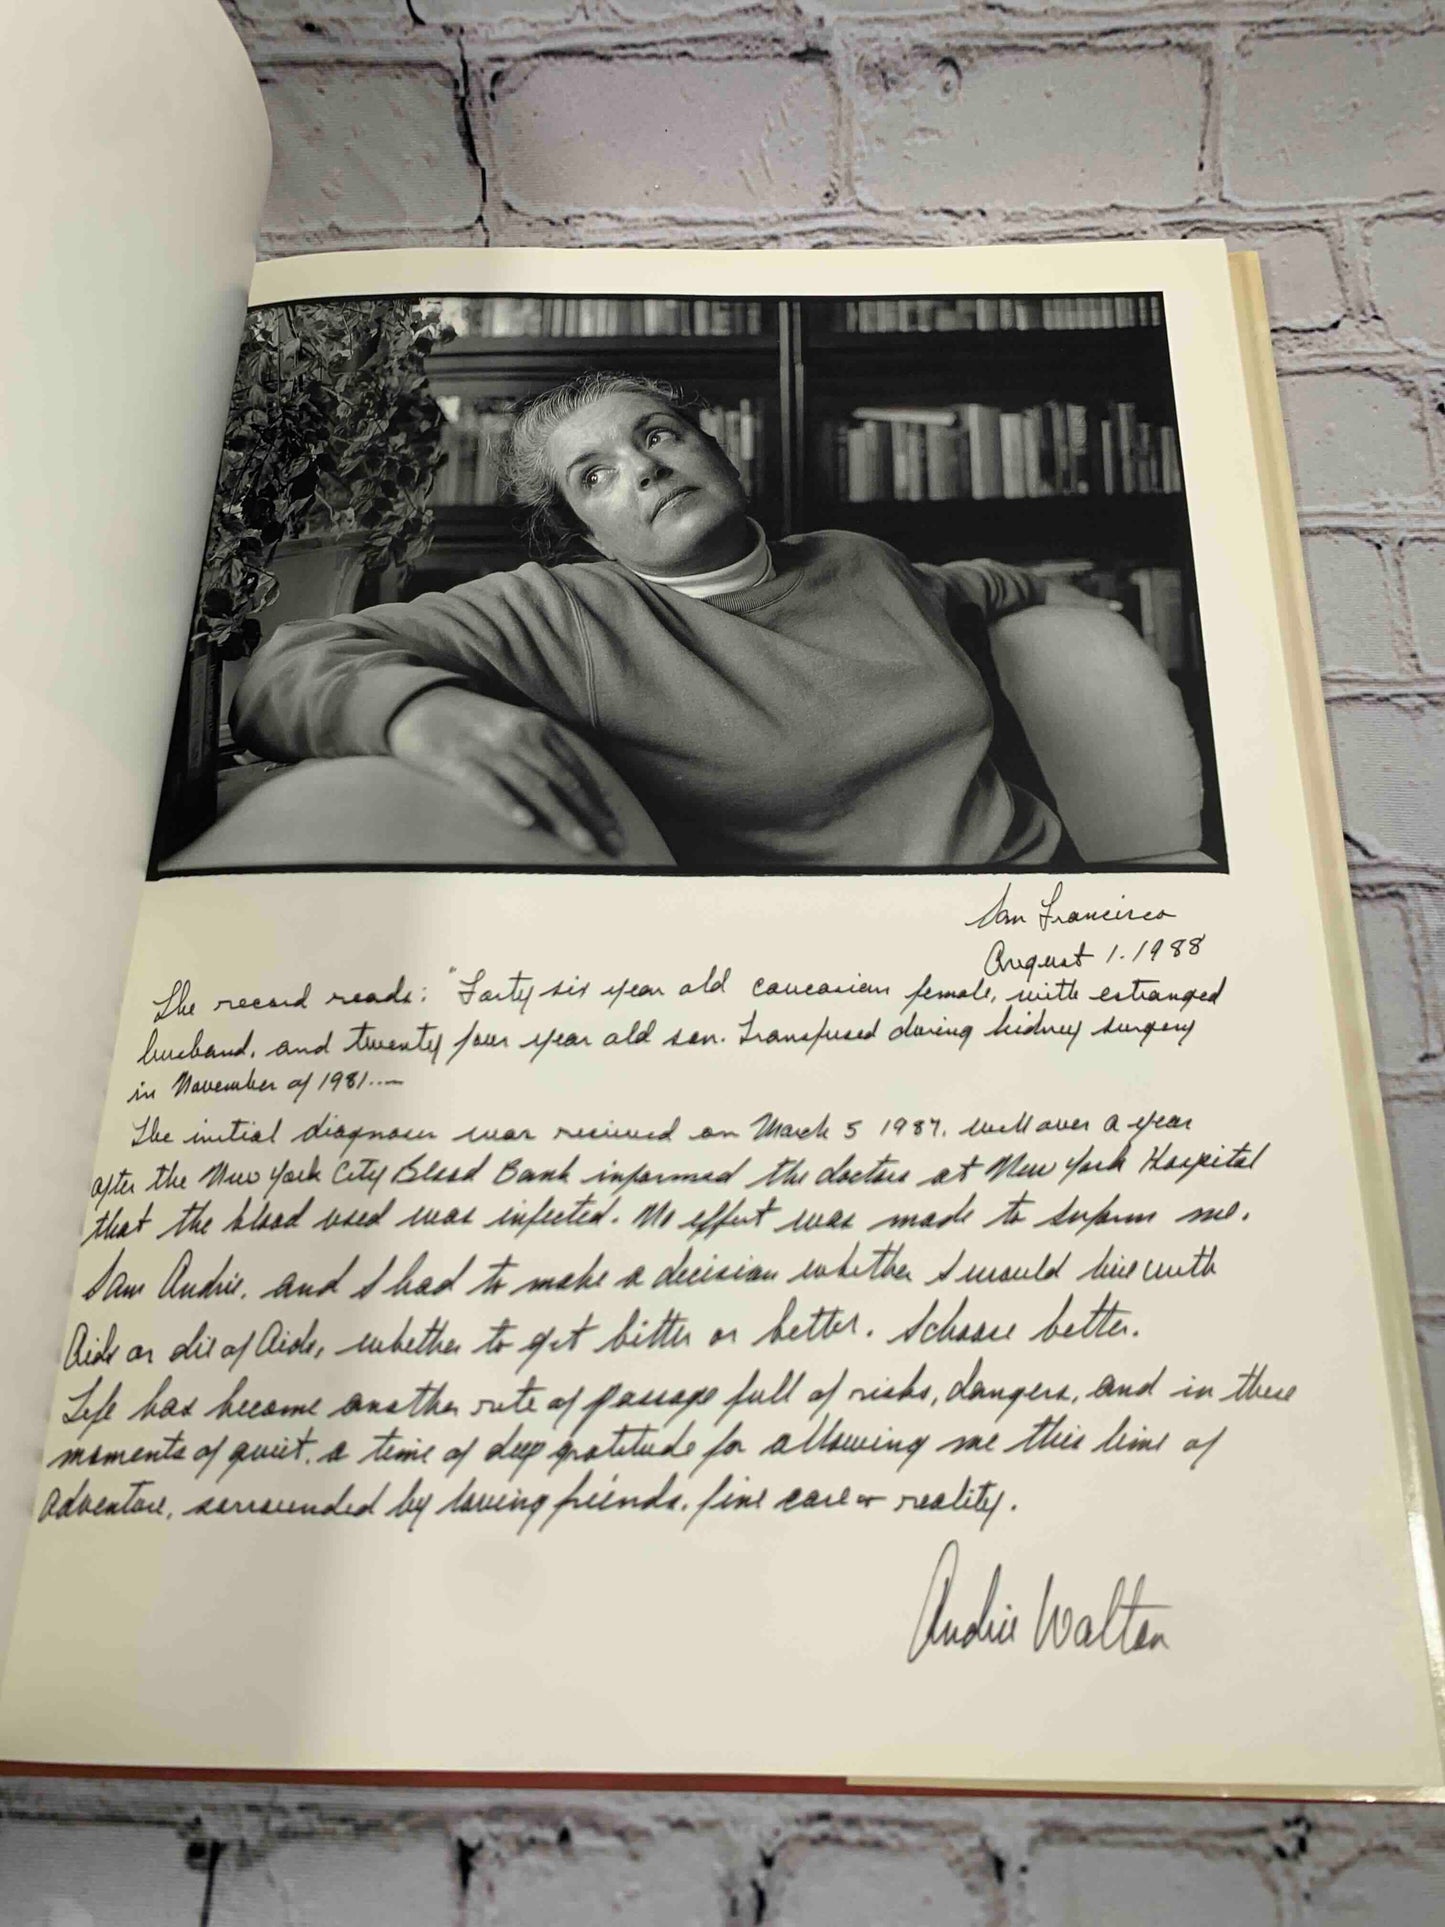 San Francisco
August 1. 1988
The record reads: "Forty six year old caucasian female, with estranged
husband, and twenty four year old son. Transfused during kidney surgery
in November of 1981...—
The initial diagnosis was recieved on March 5 1987, well over a year
after the New York City Blood Bank informed the doctors at New York Hospital
that the blood used was infected. No effort was made to inform me.
I am Andrie, and I had to make a decision whether I would live with
Aids or die of Aids, whether to get bitter or better. I choose better.
Life has become another rite of passage full of risks, dangers, and in these
moments of quiet, a time of deep gratitude for allowing me this time of
adventure, surrounded by loving friends, fine care + reality.
Andrie Walton